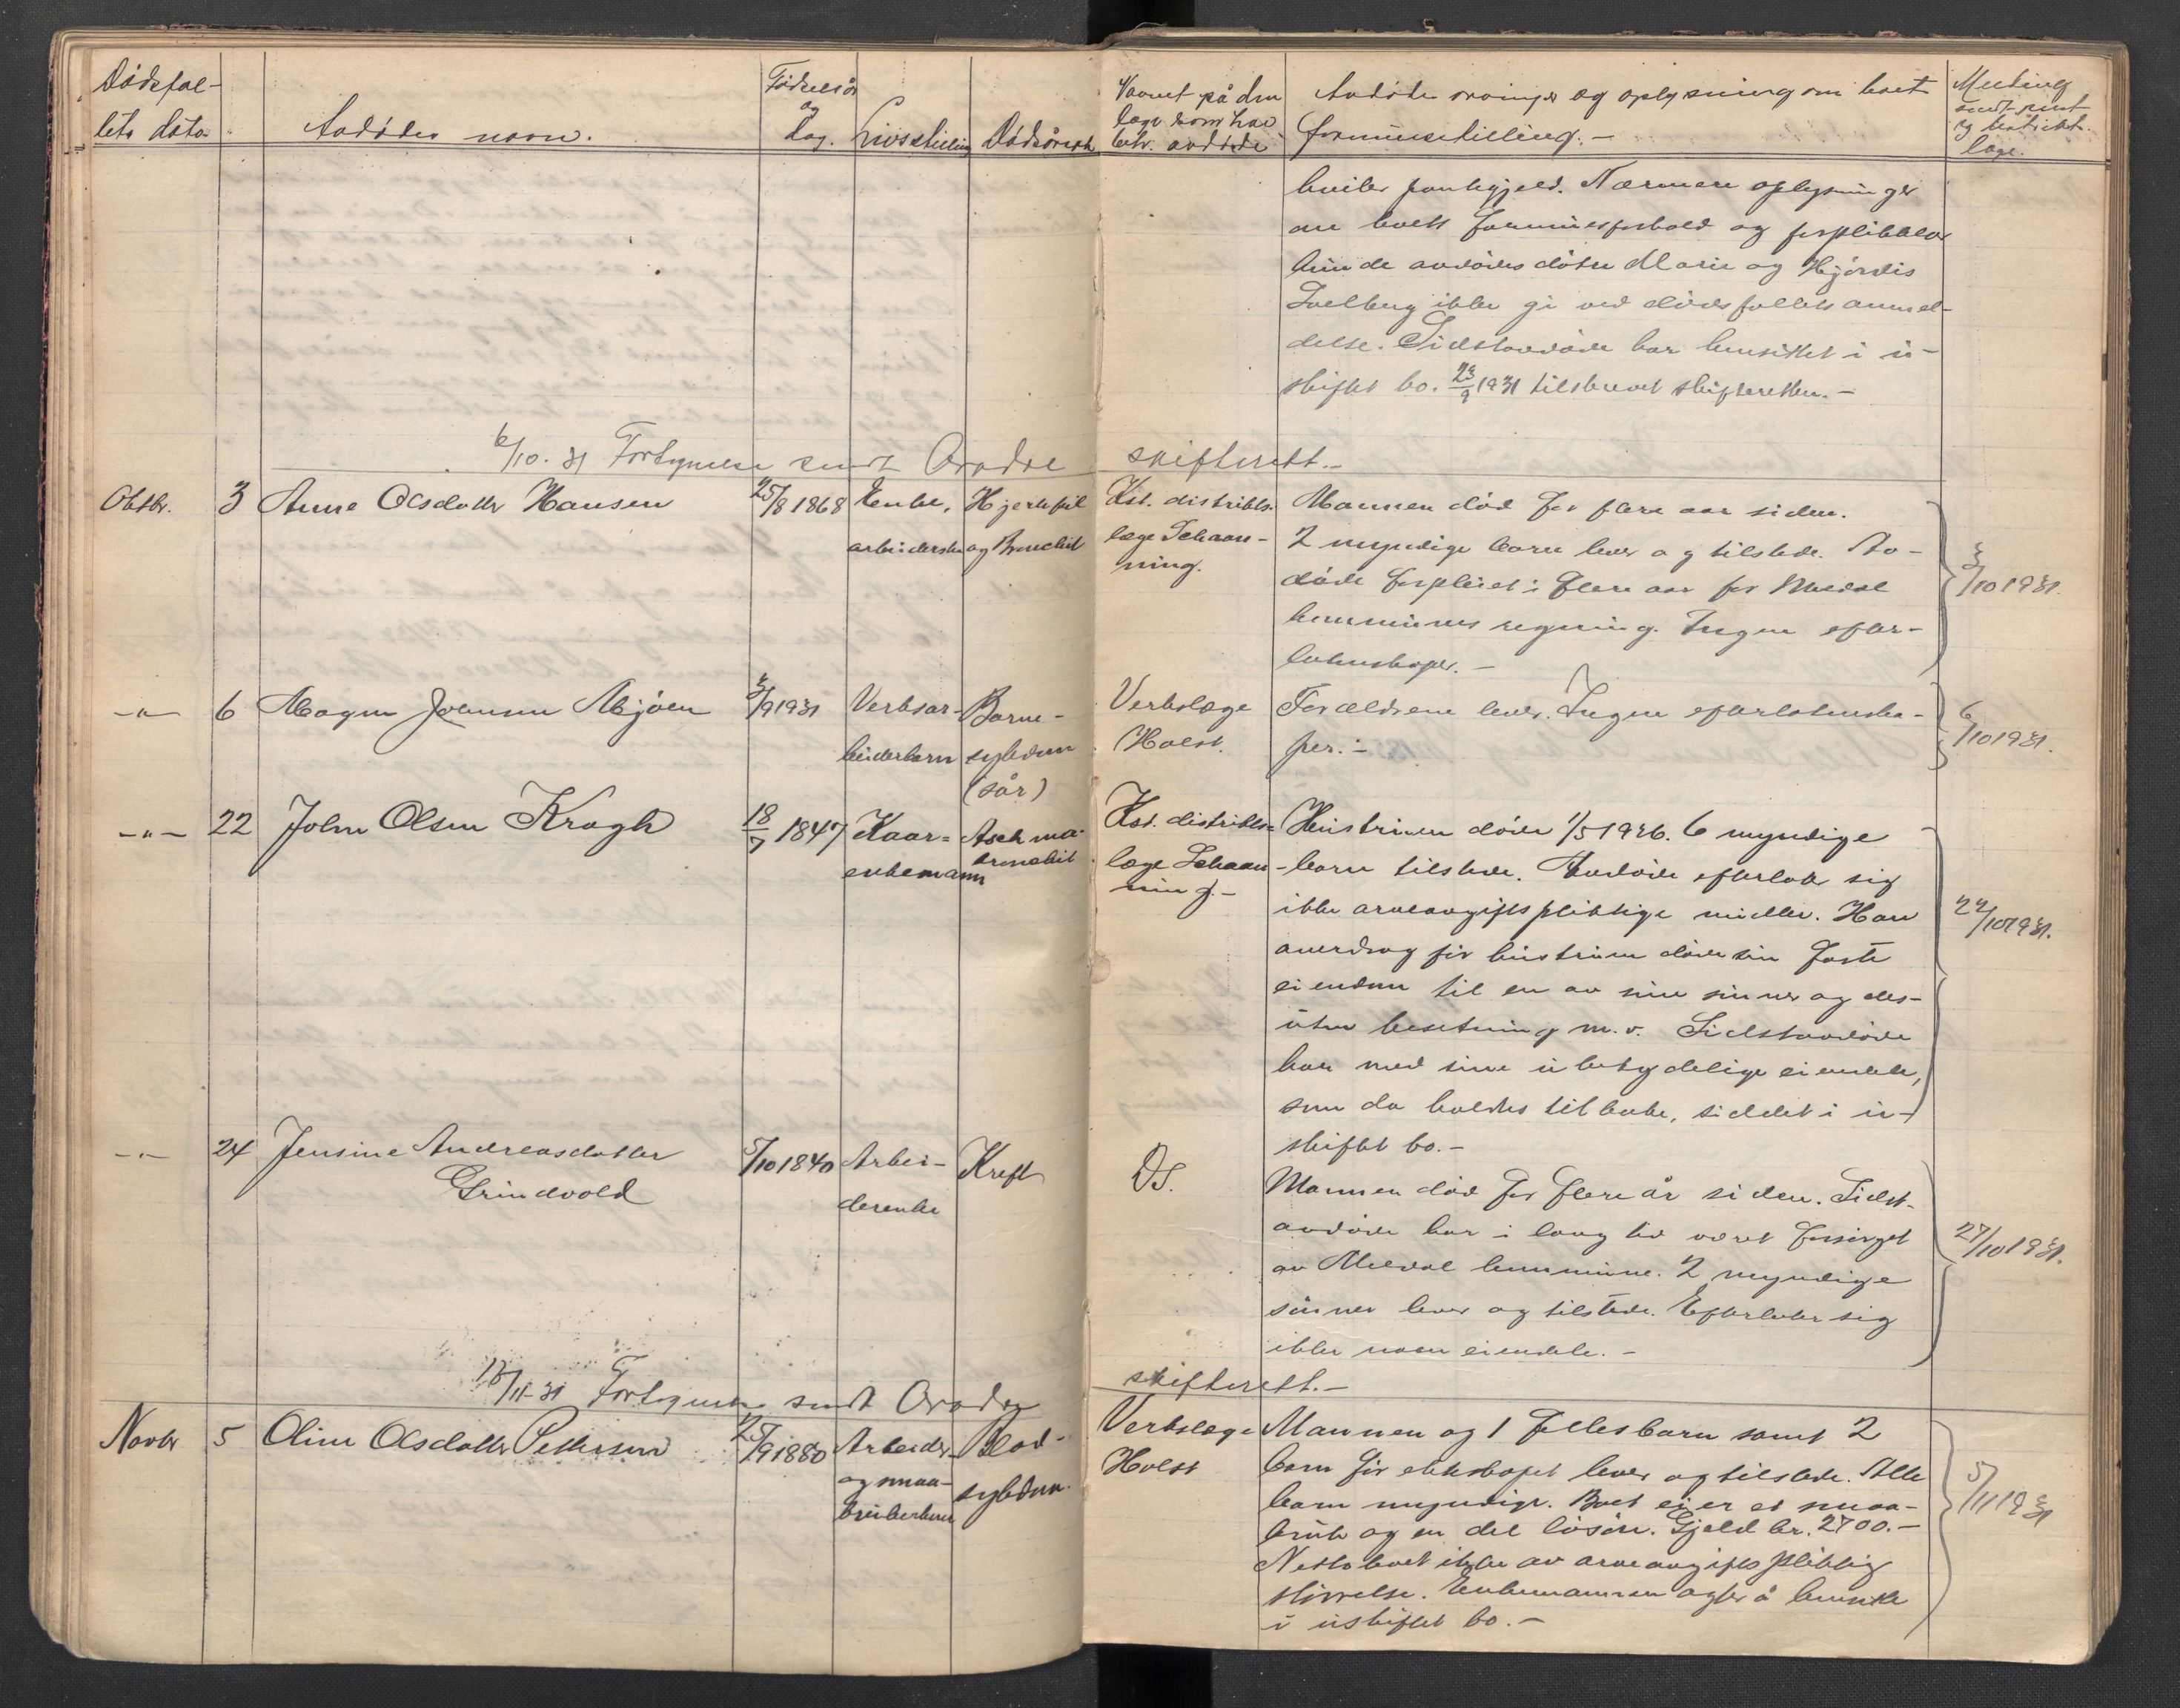 Dødsfal-
lets dato.
Avdødes navn.
Fødselsår
og
dag.
Livsstilling
Dødsårsak
Navnet på den
læge som har
beh. avdøde
Avdødes arvinger og oplysning om boet
formuestilling. -
Melding
sendt
og distrikts-
læge.
hviler pantegjeld. Nærmere oplysninger
om boets formuesforhold og forpliktelser
kunde avdødes døtre Marie og Hjørdis
Solberg ikke gi ved dødsfallets anmel-
delse. Sidstavdøde har hensittet i u-
skiftet bo. 23/9 1931 tilskrevet skifteretten. -
6/10. 31 Fortegnelse sendt Orkdal skifterett. -
Oktbr. 3 Anne Olsdatter Hansen
25/8 1868
Enke,
arbeiderske
Hjertefeil
og Bronchit
Kst. distrikts-
læge Schaan-
ning.
Mannen død for flere aar siden.
2 myndige barn lever og tilstede. Av-
døde forpleiet i flere aar for Meldal
kommunes regning. Ingen efter-
latenskaper. -
3/10 1931.
-"- 6 Magne Johnsen Mjøen
3/9 1931
Verksar-
beiderbarn
Barne-
sykdom
(sår)
Verkslæge
Holst.
Forældrene lever. Ingen efterlatenska-
per. -
6/10 1931.
-"- 22 John Olsen Kragh
18/7 1847
Kaar-
enkemann
Asthma
bronchit
Kst. distrikts-
læge Schaan-
ning. -
Hustruen døde 1/5 1926. 6 myndige
barn tilstede. Avdøde efterlater sig
ikke arveavgiftspliktige midler. Han
overdrog før hustruen døde sin faste
eiendom til en av sine sønner og des-
uten besetning m.v. Sidstavdøde
har med sine ubetydelige eiendele,
som da holdtes tilbake, siddet i u-
skiftet bo. -
22/10 1931.
-"- 24 Jensine Andreasdatter
Grindvold
5/10 1840
Arbei-
derenke
Kreft
Ds.
Mannen død for flere år siden. Sidst-
avdøde har i lang tid været forsørget
av Meldal kommune. 2 myndige
sønner lever og tilstede. Efterlater sig
ikke noen eiendele. -
27/10 1931.
13/11-31 Fortegnelse sendt Orkdal skifterett. -
Novbr 5 Oline Olsdatter Pettersen
25/9 1880
Arbeider-
og smaa-
brukerkone
Blod-
sykdom.
Verkslæge
Holst
Mannen og 1 fellesbarn samt 2
barn før ekteskapet lever og tilstede. Alle
barn myndige. Boet eier et smaa-
bruk og en del løsøre. Gjeld kr. 2700. -
Netto boet ikke av arveavgiftspliktig
størrelse. Enkemannen agter å hensitte
i uskiftet bo. -
5/11 1931